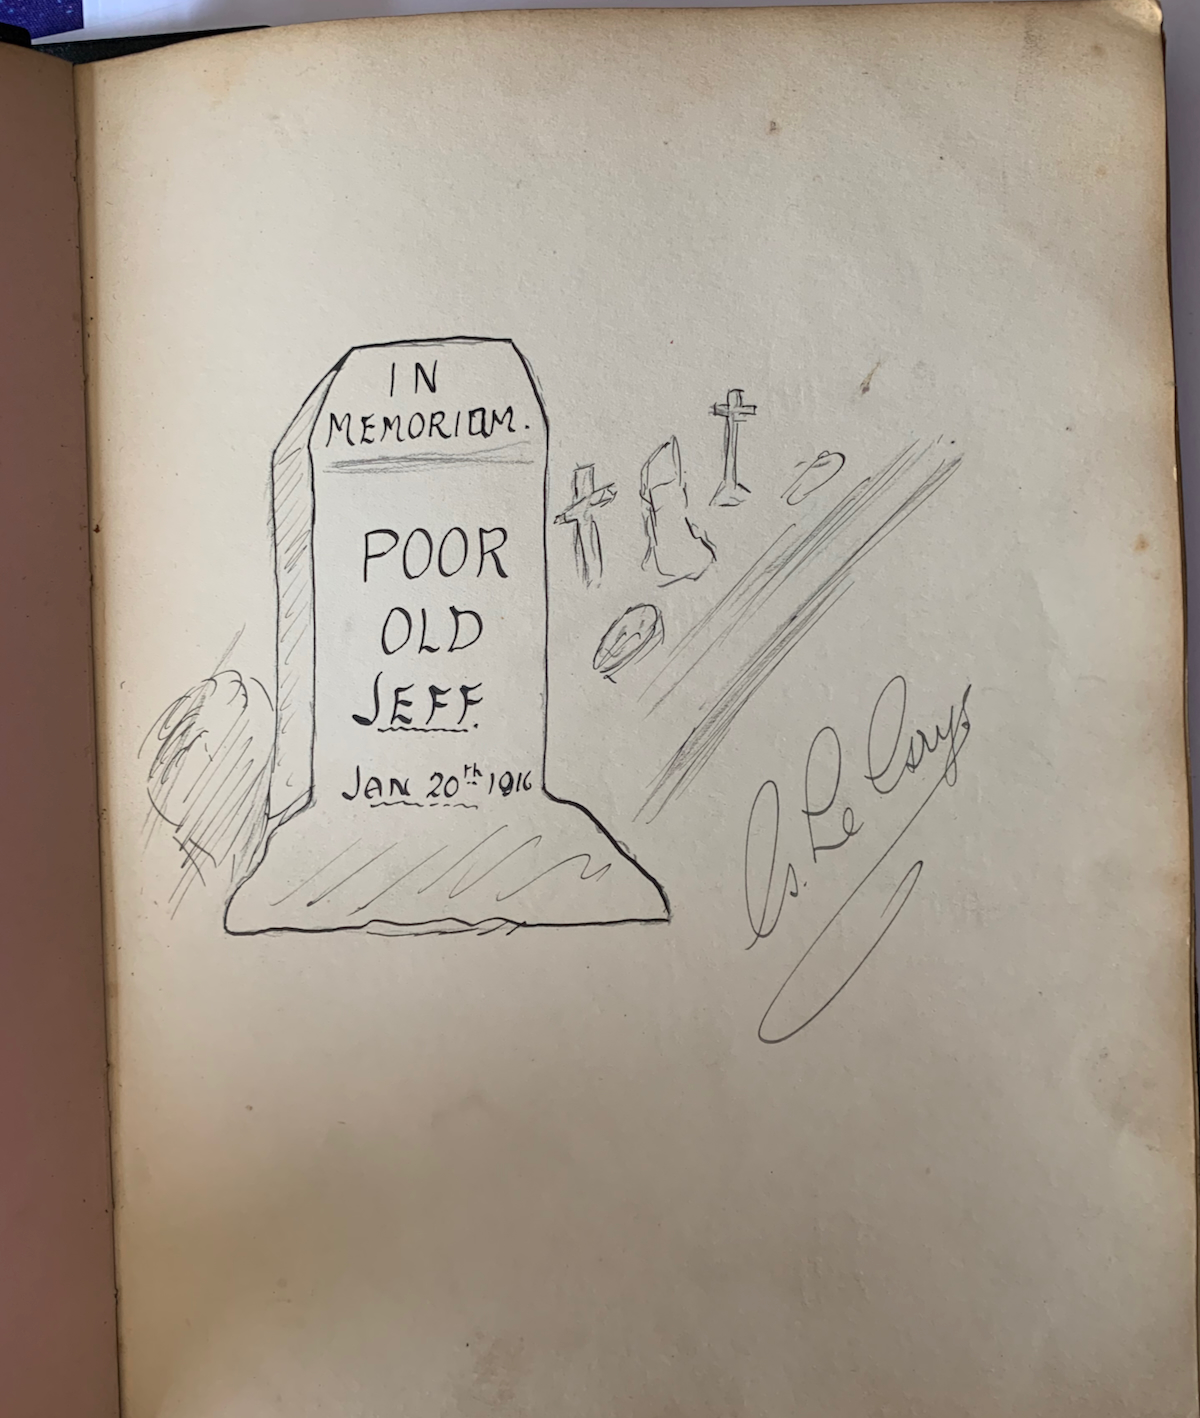 IN
MEMORIAM.
POOR
OLD
JEFF.
JAN 20th 1916
Le